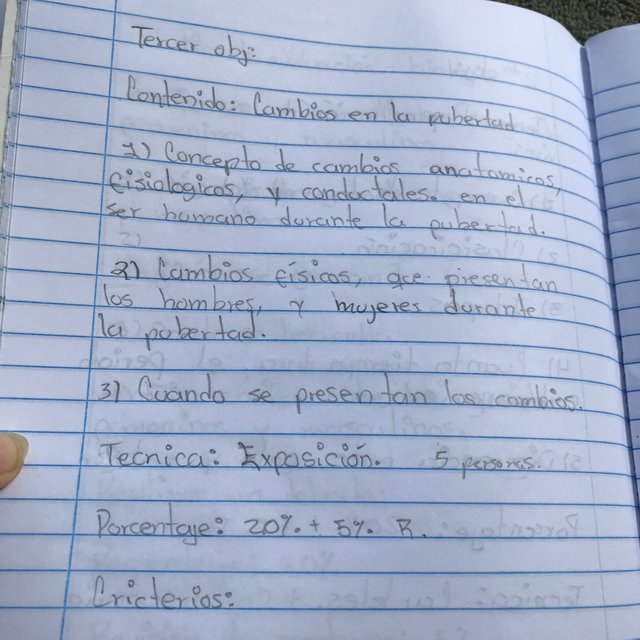 Tercer obj:
Contenido: Cambios en la pubertad
1) Concepto de cambios anatomicos,
fisiologicos, y conductales. en el
ser humano durante la pubertad.
2) Cambios físicos, que presentan
los hombres, y mujeres durante
la pubertad.
3) Cuando se presentan los cambios.
Tecnica: Exposición. 5 personas.
Porcentaje: 20% + 5% R.
Cricterios: